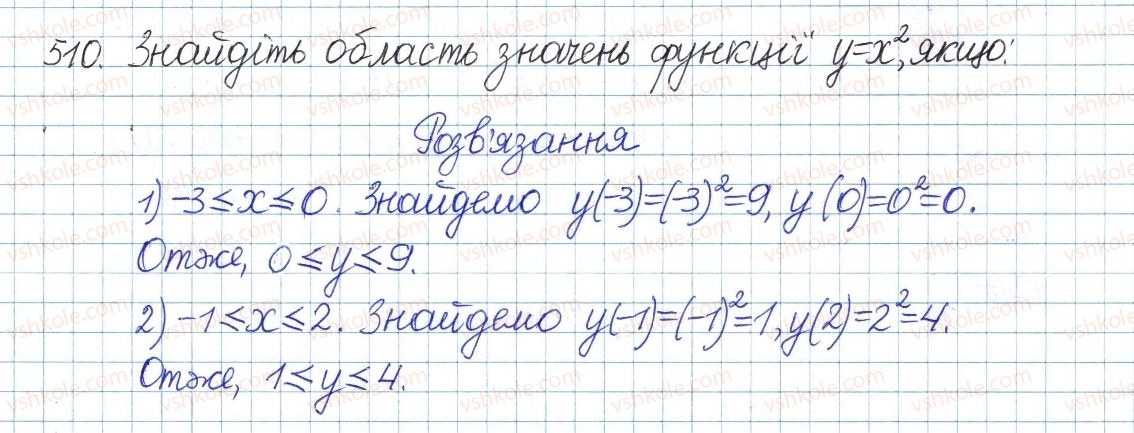 510. Знайдіть область значень функції y=x², якщо:
Розв'язання
1) -3≤x≤0. Знайдемо y(-3)=(-3)²=9, y(0)=0²=0.
Отже, 0≤y≤9.
2) -1≤x≤2. Знайдемо y(-1)=(-1)²=1, y(2)=2²=4.
Отже, 1≤y≤4.